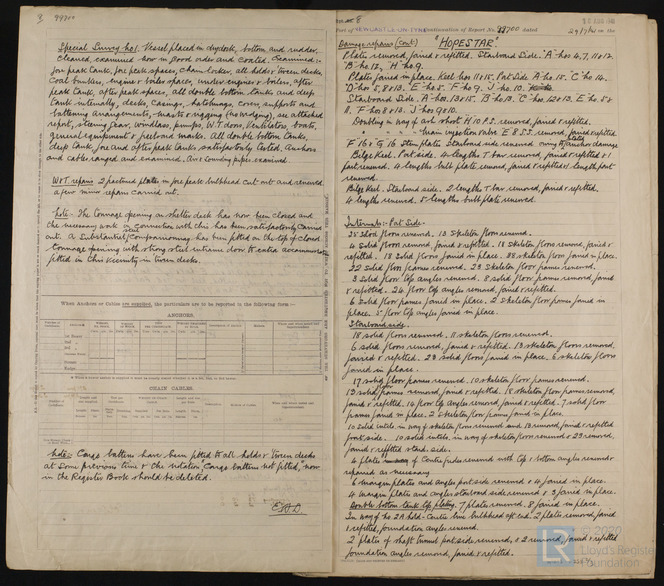 3. 99700
Special Survey No1. Vessel placed in drydock, bottom and rudder
cleaned, examined now in good order and coated. Examined:-
fore peak tank, fore peak spaces, chain locker, all holds & tween decks,
coal bunkers, engine & boiler spaces, under engines & boilers, after
peak tank, after peak spaces, all double bottom tanks and deep
tank internally, decks, casings, hatchways, covers, supports and
battening arrangements, masts & rigging (no wedging), see attached
report, steering gear, windlass, pumps, W.T. doors, Ventilators, boats,
general equipment & freeboard marks. All double bottom tanks,
deep tank, fore and after peak tanks satisfactorily tested. Anchors
and cables ranged and examined. Air & sounding pipes examined.
W & T repairs. 2 fractured plates in fore peak bulkhead cut out and renewed
a few minor repairs carried out.
Note:- The tonnage opening on shelter deck has now been closed and
the necessary work in connection with this has been satisfactorily carried
out. A substantial steel companionway has been fitted on the top of closed
tonnage opening with strong steel entrance door to extra accommodation
fitted in this vicinity in tween decks.
When Anchors or Cables are supplied, the particulars are to be reported in the following form:-
ANCHORS.
CHAIN CABLES.
Note:- Cargo battens have been fitted to all holds & tween decks
at some previous time & the notation "Cargo battens not fitted" now
in the Register Book should be deleted.
E.W.D.
8
Port of NEWCASTLE-ON-TYNE Continuation of Report No. 99700 dated 29/7/40 on the
Damage repairs (Cont) "HOPESTAR"
Plates removed, faired & refitted. Starboard Side: 'A' Nos 4, 7, 11 & 12.
'B' No. 12, 'H' No. 9.
Plates faired in place. Keel Nos 11 & 15. Port Side A No. 15. 'C' No. 14.
'D' Nos 5, 8 & 13. 'E' No. 5. 'F' No. 9. 'J' No. 10.
Starboard Side. 'A' Nos. 13 & 15. 'B' No. 13. 'C' Nos. 12 & 13. 'E' Nos. 5 &
'F' Nos 8 & 13. 'J' Nos 9 & 10.
Doubling in way of ash shoot H 10 P.S. removed, faired & refitted.
" " " main injection valve E 8 S.S. removed, faired & refitted.
F 16 & G 16 Stem plates Starboard side renewed owing to anchor damage
Bilge Keel. Port side. 4 lengths T bar removed, faired & refitted & 1
part renewed. 4 lengths bulb plate removed, faired & refitted & 1 length part
renewed.
Bilge Keel. Starboard side. 2 lengths T bar removed, faired & refitted.
4 lengths renewed. 5 lengths bulb plate renewed.
Internals:- Port Side-
25 Solid floors renewed. 13 Skeleton floors renewed.
4 Solid floors removed, faired & refitted. 18 Skeleton floors removed, faired &
refitted. 18 Solid floors faired in place. 38 skeleton floors faired in place.
22 Solid floor frames renewed. 29 Skeleton floor frames renewed.
3 Solid floor top angles renewed. 8 solid floor frames removed, faired
& refitted. 24 floor top angles removed, faired & refitted.
6 Solid floor frames faired in place. 2 Skeleton floor frames faired in
place. floor top angles faired in place.
Starboard side.
18 solid floors renewed. 11 skeleton floors renewed.
6 solid floors removed, faired & refitted. 13 skeleton floors removed,
faired & refitted. 29 solid floors faired in place. 6 skeleton floors
faired in place.
17 solid floor frames renewed. 10 skeleton floor frames renewed.
13 solid floor frames removed, faired & refitted. 18 skeleton floor frames removed,
faired & refitted. 14 floor top angles removed, faired & refitted. 7 solid floor
frames faired in place. 2 skeleton floor frames faired in place.
10 solid intcls. in way of skeleton floors renewed and 13 removed, faired & refitted
port side. 10 solid intcls. in way of skeleton floors renewed & 23 removed,
faired & refitted starbd. side.
4 plates of Centre girder renewed with top & bottom angles renewed or
repaired as necessary
6 margin plates and angles port side renewed & 4 faired in place.
4 margin plates and angles starboard side renewed & 3 faired in place.
Double bottom tank top plating. 7 plates renewed. 8 faired in place.
In way of No 2A hold - Centre line bulkhead aft end. 2 plates removed, faired
& refitted, foundation angles renewed.
2 plates of shaft tunnel port side renewed, & 2 removed, faired & refitted
foundation angles removed, faired & refitted.
© 2020
LR
Lloyd's Register
Foundation